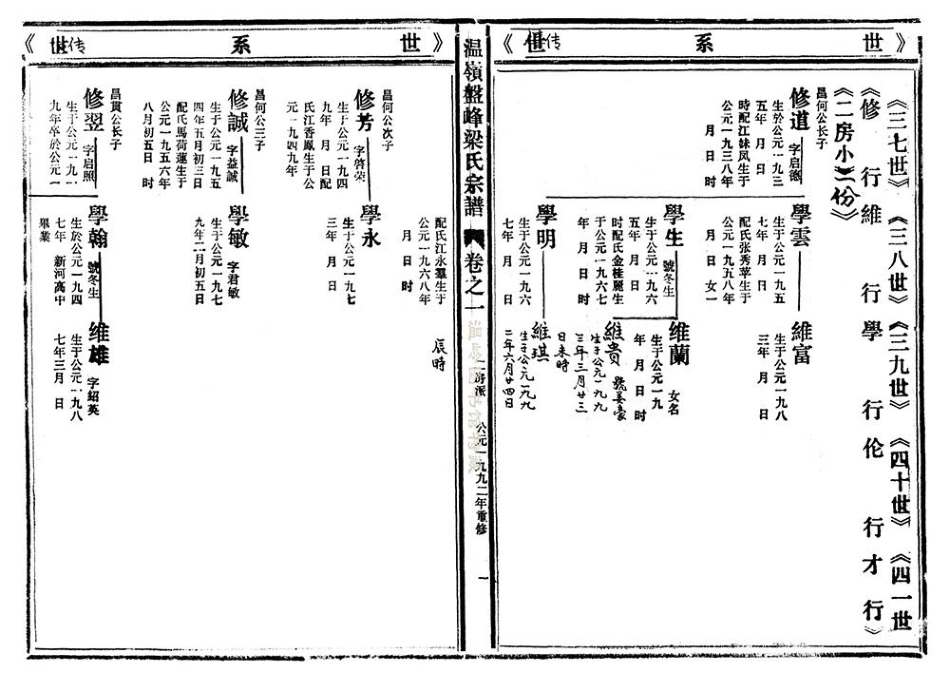 《世 系 世传》
《三七世》《三八世》《三九世》《四十世》《四一世
《修 行 維 行 學 行 伦 行 才 行》
《二房小二份》
昌何公长子
修道 字启德
生於公元一九三
五年 月 日
時配江妹凤生于
公元一九三八年
月 日 时
學雲
生于公元一九五
七年 月 日
配氏张秀苹生于
公元一九五八年
月 日 女一
維富
生于公元一九八
三年 月 日
學生 號冬生
生于公元一九六
五年 月 日
时配氏金桂麗生
于公元一九六七
年 月 日 时
维蘭 女名
生于公元一九
年 月 日 时
維貴 號姜豪
生于公元一九九
三年三月廿三
日未時
學明
生于公元一九六
七年 月 日
維琪
生于公元一九九
二年六月廿四日
温嶺盤峰梁氏宗譜 卷之一 二房派 公元一九九二年重修 一
《世 系 世传》
配氏江永羣生于
公元一九六八年
月 日 时
辰時
昌何公次子
修芳 字啓荣
生于公元一九四
九年 月 日配
氏江香鳳生于公
元一九四九年
學永
生于公元一九七
三年 月 日
昌何公三子
修誠 字益誠
生于公元一九五
四年五月初三日
配氏馬荷蓮生于
公元一九五六年
八月初五日 时
學敏 字君敏
生于公元一九七
九年二月初五日
昌貫公长子
修翌 字启照
生于公元一九一
九年卒於公元一
學翰 號冬生
生於公元一九四
七年 新河高中
畢業
维雄 字紹英
生于公元一九八
七年三月 日